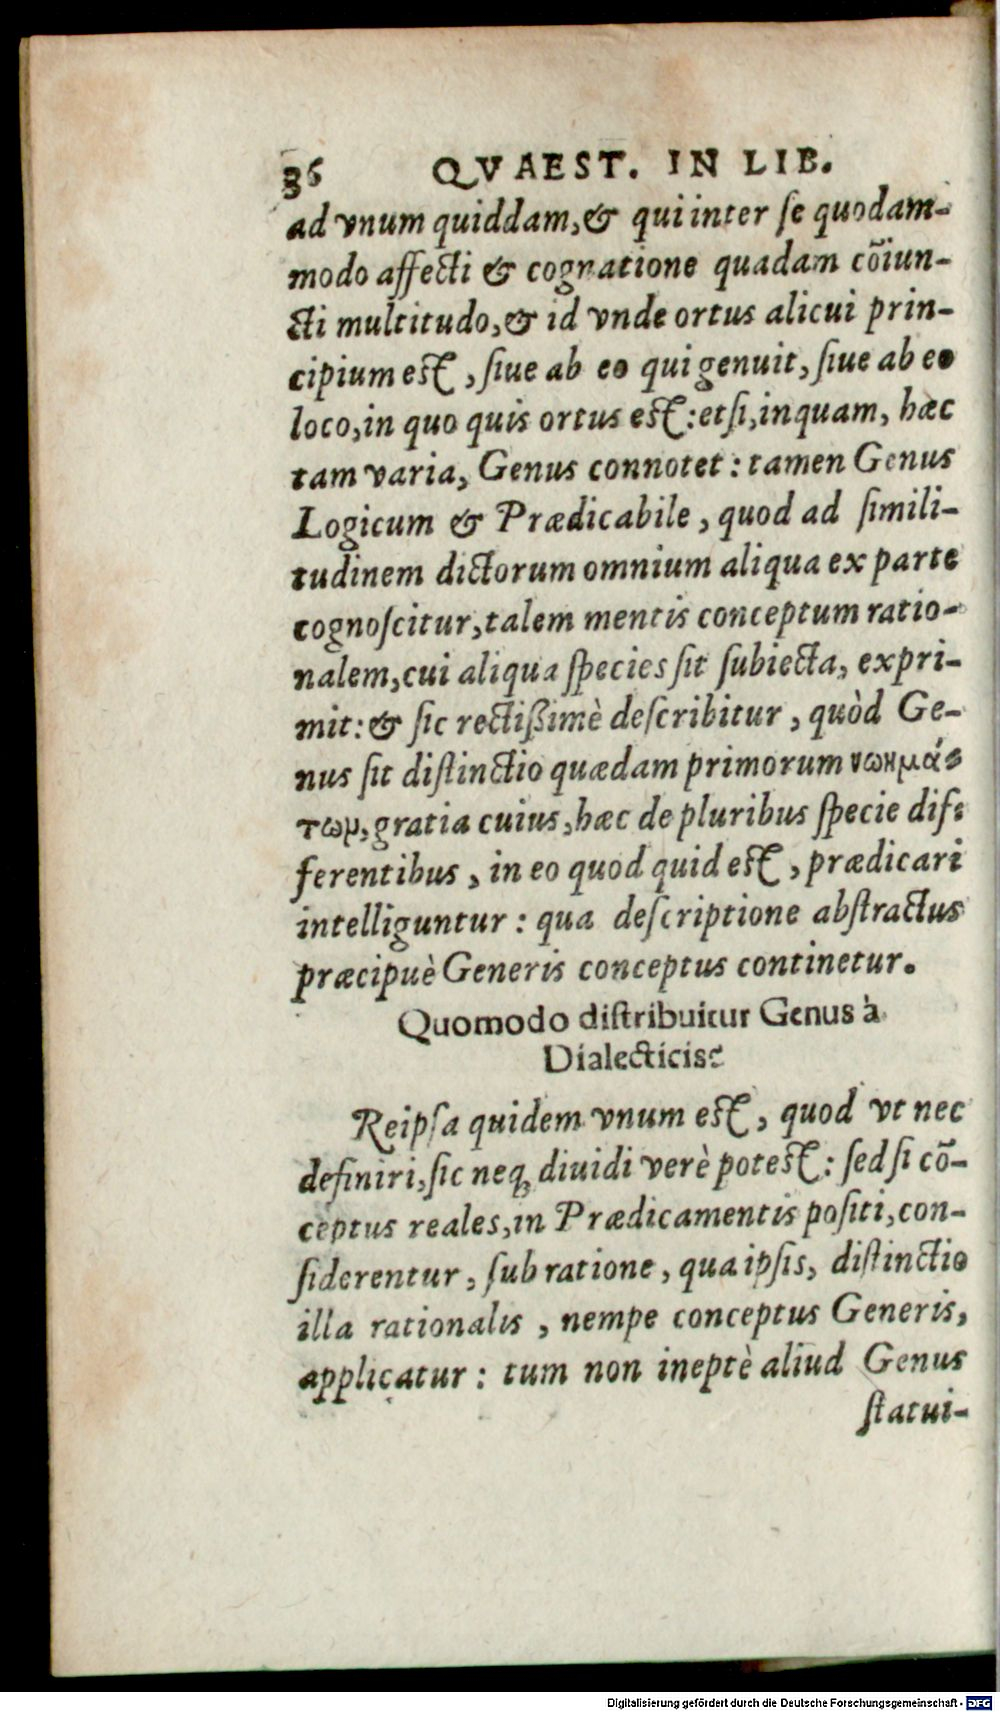 36 QVAEST. IN LIB.
ad vnum quiddam, & qui inter se quodam-
modo affecti & cognatione quadam cõiun-
cti multitudo, & id vnde ortus alicui prin-
cipium est, siue ab eo qui genuit, siue ab eo
loco, in quo quis ortus est: etsi, inquam, hæc
tam varia, Genus connotet: tamen Genus
Logicum & Prædicabile, quod ad simili-
tudinem dictorum omnium aliqua ex parte
cognoscitur, talem mentis conceptum ratio-
nalem, cui aliqua species sit subiecta, expri-
mit: & sic rectißimè describitur, quòd Ge-
nus sit distinctio quædam primorum νωημά-
τωμ, gratia cuius, hæc de pluribus specie dif-
ferentibus, in eo quod quid est, prædicari
intelliguntur: qua descriptione abstractus
præcipuè Generis conceptus continetur.
Quomodo distribuitur Genus à
Dialecticis?
Reipsa quidem vnum est, quod vt nec
definiri, sic neq; diuidi verè potest: sed si cõ-
ceptus reales, in Prædicamentis positi, con-
siderentur, sub ratione, qua ipsis, distinctio
illa rationalis, nempe conceptus Generis,
applicatur: tum non ineptè aliud Genus
statui-
Digitalisierung gefördert durch die Deutsche Forschungsgemeinschaft - DFG